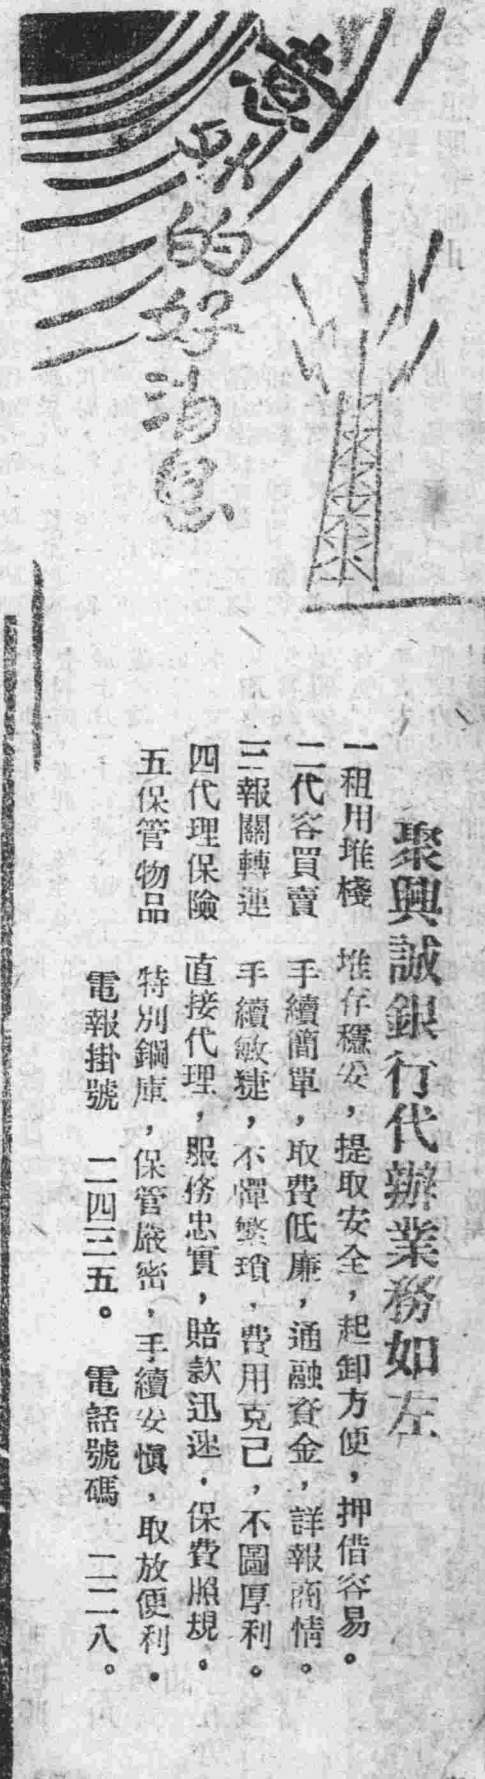 意外的好消息
聚興誠銀行代辦業務如左
一租用堆棧　堆存穩妥，提取安全，起卸方便，押借容易。
二代客買賣　手續簡單，取費低廉，通融資金，詳報商情。
三報關轉運　手續敏捷，不憚繁瑣，費用克己，不圖厚利。
四代理保險　直接代理，服務忠實，賠款迅速，保費照規。
五保管物品　特別鋼庫，保管嚴密，手續妥慎，取放便利。
電報掛號　二四三五。　電話號碼　二二八。